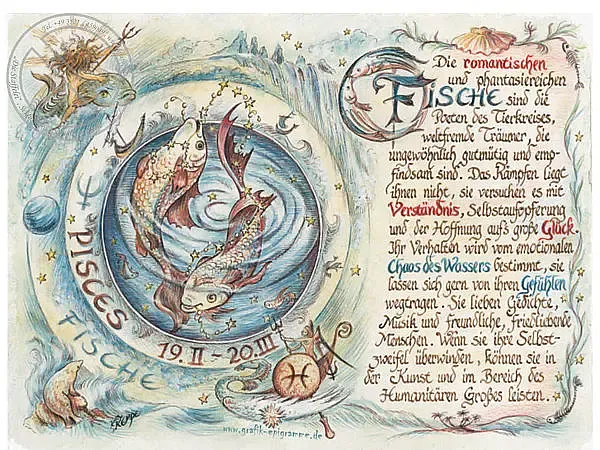 Die romantischen
und phantasiereichen
FISCHE sind die
Poeten des Tierkreises,
weltfremde Träumer, die
ungewöhnlich gutmütig und emp-
findsam sind. Das Kämpfen liegt
ihnen nicht, sie versuchen es mit
Verständnis, Selbstaufopferung
und der Hoffnung aufs große Glück.
Ihr Verhalten wird vom emotionalen
Chaos des Wassers bestimmt, sie
lassen sich gern von ihren Gefühlen
wegtragen. Sie lieben Gedichte,
Musik und freundliche, friedliebende
Menschen. Wenn sie ihre Selbst-
zweifel überwinden, können sie in
der Kunst und im Bereich des
Humanitären Großes leisten.
PISCES
FISCHE
19.II - 20.III
www.grafik-epigramme.de